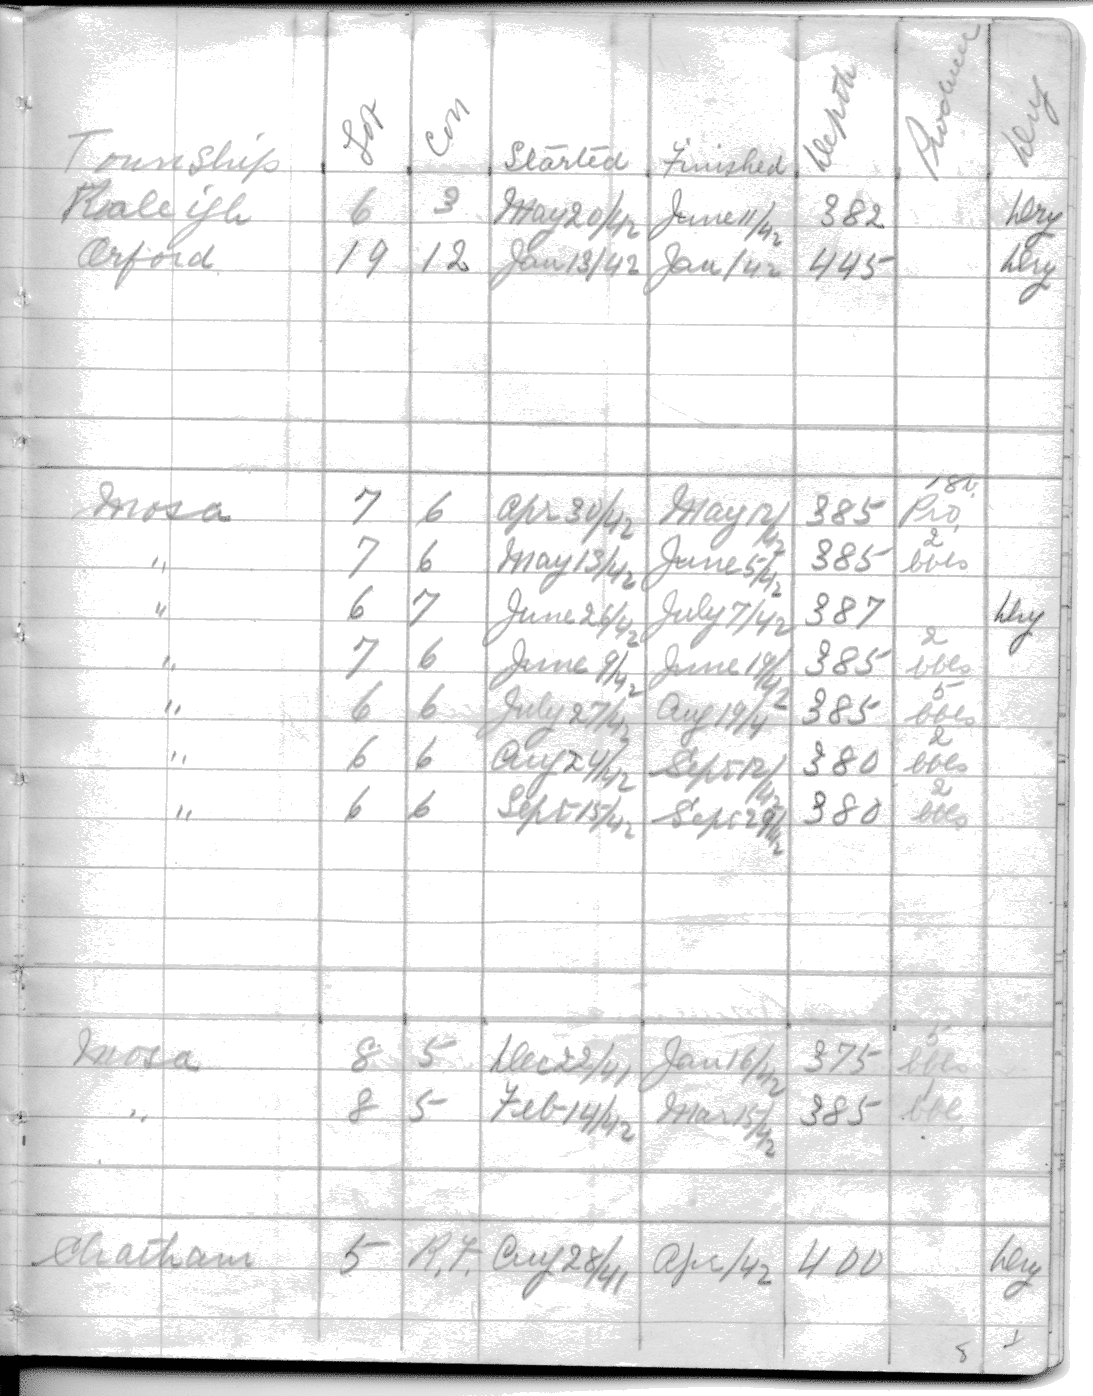 Township Lot Con Started Finished Depth Producer Dry
Raleigh 6 3 May 20/42 June 11/42 382 Dry
Orford 19 12 Jan 13/42 Jan /42 445 Dry
Mosa 7 6 Apr 30/42 May 12/42 385 Pro,
" 7 6 May 13/42 June 5/42 385 2 bbls
" 6 7 June 26/42 July 7/42 387 Dry
" 7 6 June 9/42 June 19/42 385 2 bbls
" 6 6 July 27/42 Aug 19/4 385 5 bbls
" 6 6 Aug 24/42 Sept 12/42 380 2 bbls
" 6 6 Sept 15/42 Sept 29/42 380 2 bbls
Mosa 8 5 Dec 22/41 Jan 16/42 375 5 bbls
" 8 5 Feb 14/42 Mar 15/42 385 1 bbl
Chatham 5 R.F. Aug 28/41 Apr /42 400 Dry
8 1